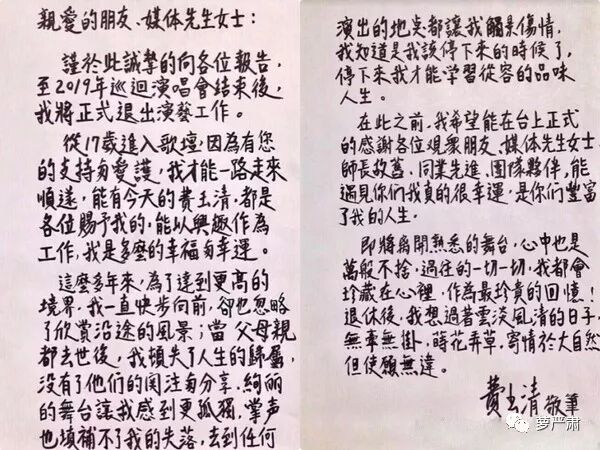 親愛的朋友、媒体先生女士：
謹於此誠摯的向各位報告，
至2019年巡迴演唱會結束後，
我將正式退出演藝工作。
從17歲進入歌壇，因為有您
的支持与愛護，我才能一路走來
順遂，能有今天的費玉清，都是
各位賜予我的，能以興趣作為
工作，我是多麼的幸福与幸運。
這麼多年來，為了達到更高的
境界，我一直快步向前，卻也忽略
了欣賞沿途的風景；當父母親
都去世後，我頓失了人生的歸屬，
沒有了他們的関注与分享，絢麗
的舞台讓我感到更孤獨，掌声
也填補不了我的失落，去到任何
演出的地点都讓我觸景傷情，
我知道是我該停下來的時候了，
停下來我才能学習從容的品味
人生。
在此之前，我希望能在台上正式
的感謝各位观衆朋友、媒体先生女士、
師長故舊、同業先進、团隊夥伴，能
遇見你們我真的很幸運，是你們豐富
了我的人生。
即將离開熟悉的舞台，心中也是
萬般不捨，過往的一切一切，我都會
珍藏在心裡，作為最珍貴的回憶！
退休後，我想過著雲淡風清的日子，
無牽無掛，蒔花弄草，寄情於大自然
但使願無違。
費玉清 敬筆
萝严肃